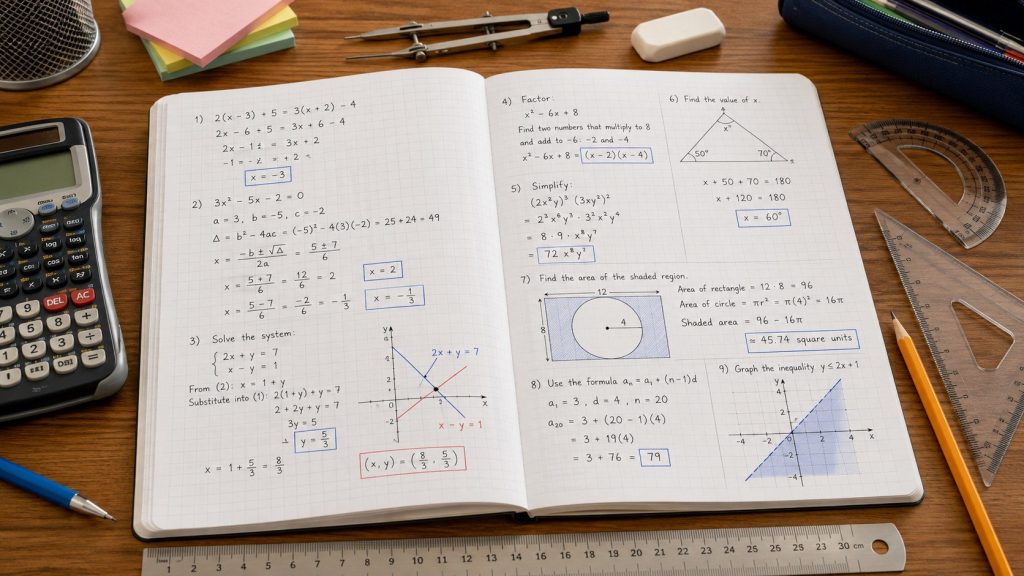 1) 2(x − 3) + 5 = 3(x + 2) − 4
2x − 6 + 5 = 3x + 6 − 4
= 3x + 2
x = −3
2) 3x² − 5x − 2 = 0
a = 3, b = −5, c = −2
Δ = b² − 4ac = (−5)² − 4(3)(−2) = 25 + 24 = 49
x = (−b ± √Δ)/2a = (5 ± 7)/6
x = (5 + 7)/6 = 12/6 = 2
x = 2
x = (5 − 7)/6 = −2/6 = −1/3
x = −1/3
3) Solve the system:
2x + y = 7
x − y = 1
From (2): x = 1 + y
Substitute into (1): 2(1 + y) + y = 7
2 + 2y + y = 7
3y = 5
y = 5/3
x = 1 + 5/3 = 8/3
y
2x + y = 7
x
x − y = 1
(x, y) = (8/3, 5/3)
4) Factor:
x² − 6x + 8
Find two numbers that multiply to 8
and add to −6: −2 and −4
x² − 6x + 8 = (x − 2)(x − 4)
5) Simplify:
(2x²y)³ (3xy²)²
= 2³x⁶y³ · 3²x²y⁴
= 8 · 9 · x⁸y⁷
= 72 x⁸y⁷
6) Find the value of x.
x°
50°
70°
x + 50 + 70 = 180
x + 120 = 180
x = 60°
7) Find the area of the shaded region.
12
8
4
Area of rectangle = 12 · 8 = 96
Area of circle = πr² = π(4)² = 16π
Shaded area = 96 − 16π
≈ 45.74 square units
8) Use the formula aₙ = a₁ + (n−1)d
a₁ = 3, d = 4, n = 20
a₂₀ = 3 + (20 − 1)(4)
= 3 + 19(4)
= 3 + 76 = 79
9) Graph the inequality y ≤ 2x + 1
y
−4 −2 0 2 4 x
−2
−4
DEL AC
1 2 3 4 5 6 7 8 9 10 11 12 13 14
30 cm